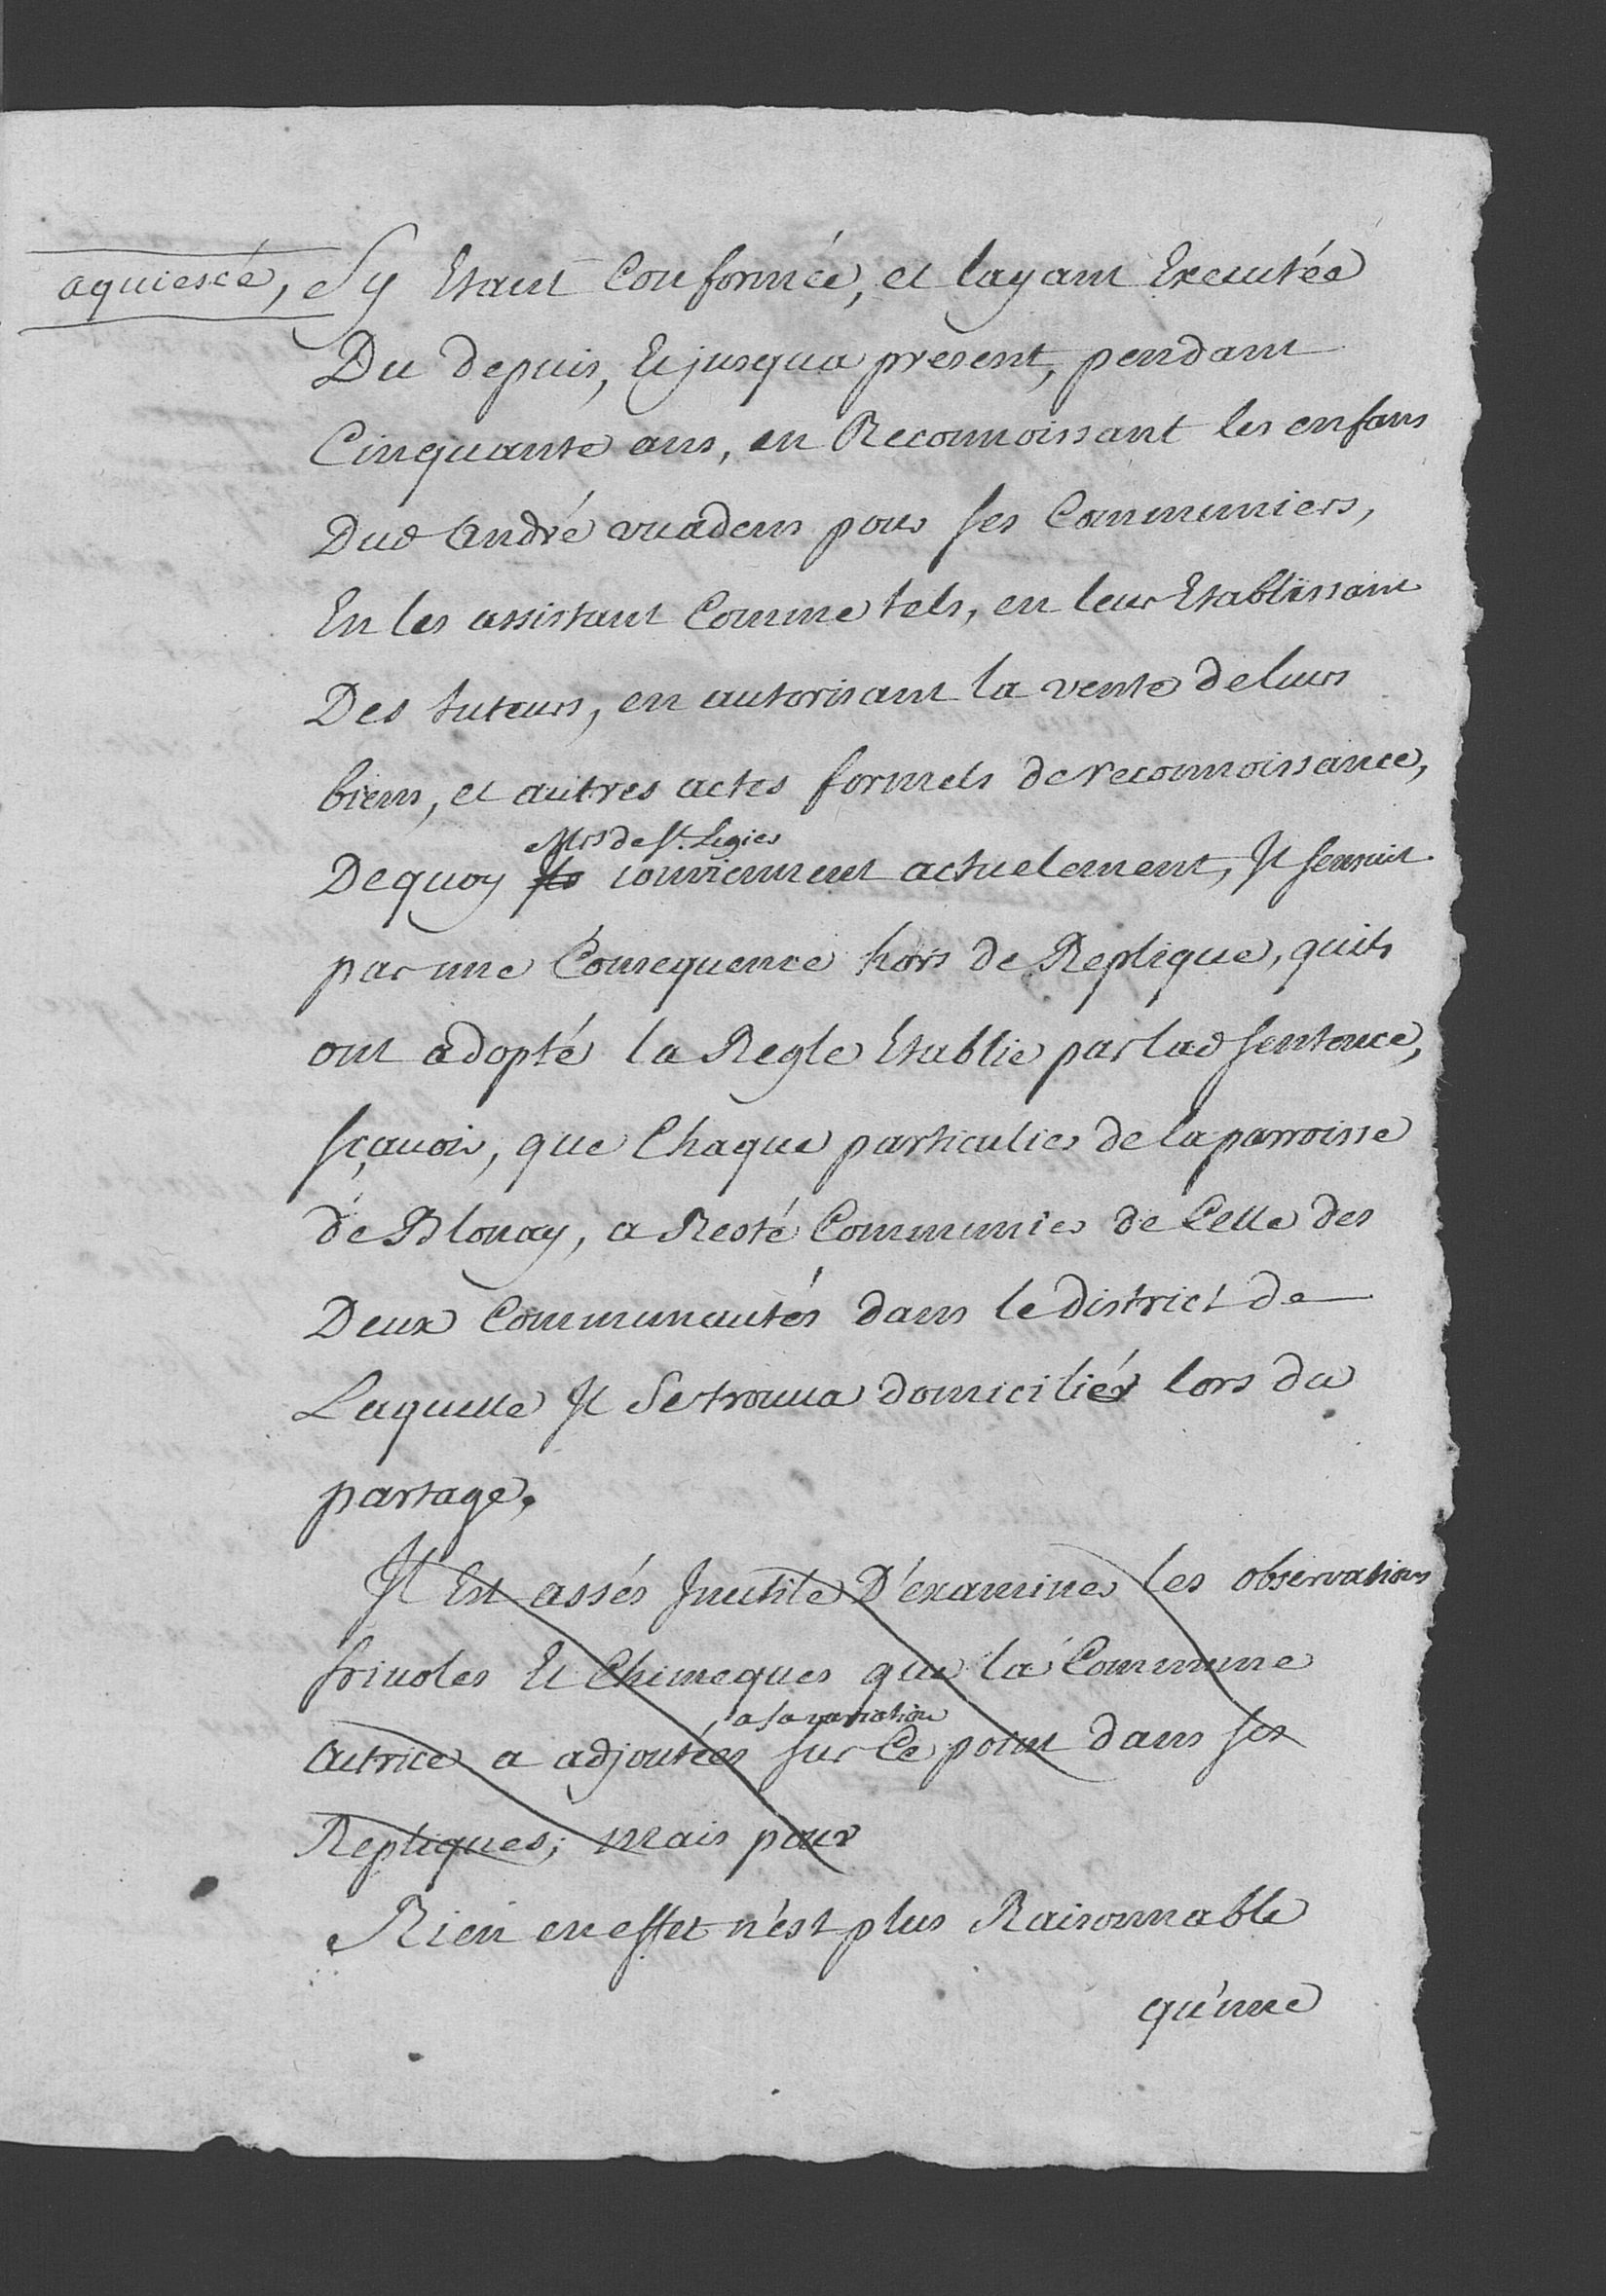 aquiescé, Sy Etant Conformée, et layant Executée
Du depuis, Et jusqua present, pendant
Cinquante ans, en Reconnoissant les enfans
Dud André vuadens pour ses Communiers,
En les assistant Comme tels, en leur Etablissant
Des tuteurs, en autorisant la vente de leurs
biens, et autres actes formels de reconnoissance,
Mrs de St. Legier
De quoy Ils conviennent actuelement, Il sensuit
par une Consequence hors de Replique, quils
ont adopté la Regle Etablie par lad sentence,
sçavoir, que Chaque particulier de la parroisse
de Blonay, a Resté Communier de Celle des
Deux Communautés dans le district de
Laquelle Il Se trouva domicilié lors du
partage.
Il Est assés Inutile D'examiner les observations
frivoles Et Chimeques que la Commune
a sa narration
Actrice a adjoutées sur Ce point dans ses
Repliques; mais pour
Rien en effet n'est plus Raisonnable
qu'une